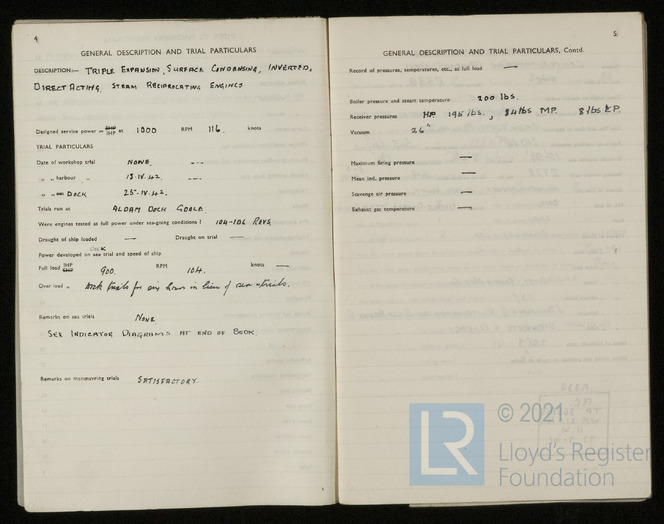 4
GENERAL DESCRIPTION AND TRIAL PARTICULARS
DESCRIPTION:— TRIPLE EXPANSION, SURFACE CONDENSING, INVERTED,
DIRECT ACTING, STEAM RECIPROCATING ENGINES
Designed service power = BHP IHP at 1000 RPM 116. knots
TRIAL PARTICULARS
Date of workshop trial NONE. ---
„ „ harbour „ 13.IV.42. ---
„ „ sea DOCK 25.IV.42.
Trials run at ALDAM DOCK GOOLE.
Were engines tested at full power under sea-going conditions? 104-106 REVS.
Draught of ship loaded — Draught on trial —
Power developed on sea DOCK trial and speed of ship
Full load IHP BHP 900. RPM 104. knots —
Over load „ Dock trials for six hours in lieu of sea trials.
Remarks on sea trials NONE
SEE INDICATOR DIAGRAMS AT END OF BOOK
Remarks on manœuvring trials SATISFACTORY.
5
GENERAL DESCRIPTION AND TRIAL PARTICULARS, Contd.
Record of pressures, temperatures, etc., at full load —
Boiler pressure and steam temperature 200 lbs.
Receiver pressures HP 195 lbs., 84 lbs MP. 8 lbs LP.
Vacuum 26"
Maximum firing pressure —
Mean ind. pressure —
Scavenge air pressure —
Exhaust gas temperature —
LR
© 2021
Lloyd's Register
Foundation